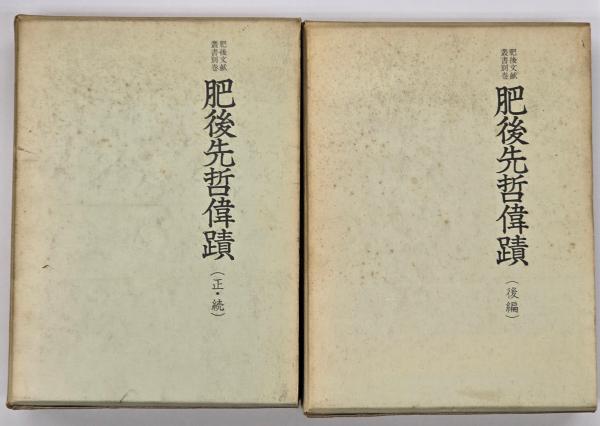 肥後文献
叢書別巻
肥後先哲偉蹟
(正・続)
肥後文献
叢書別巻
肥後先哲偉蹟
(後編)